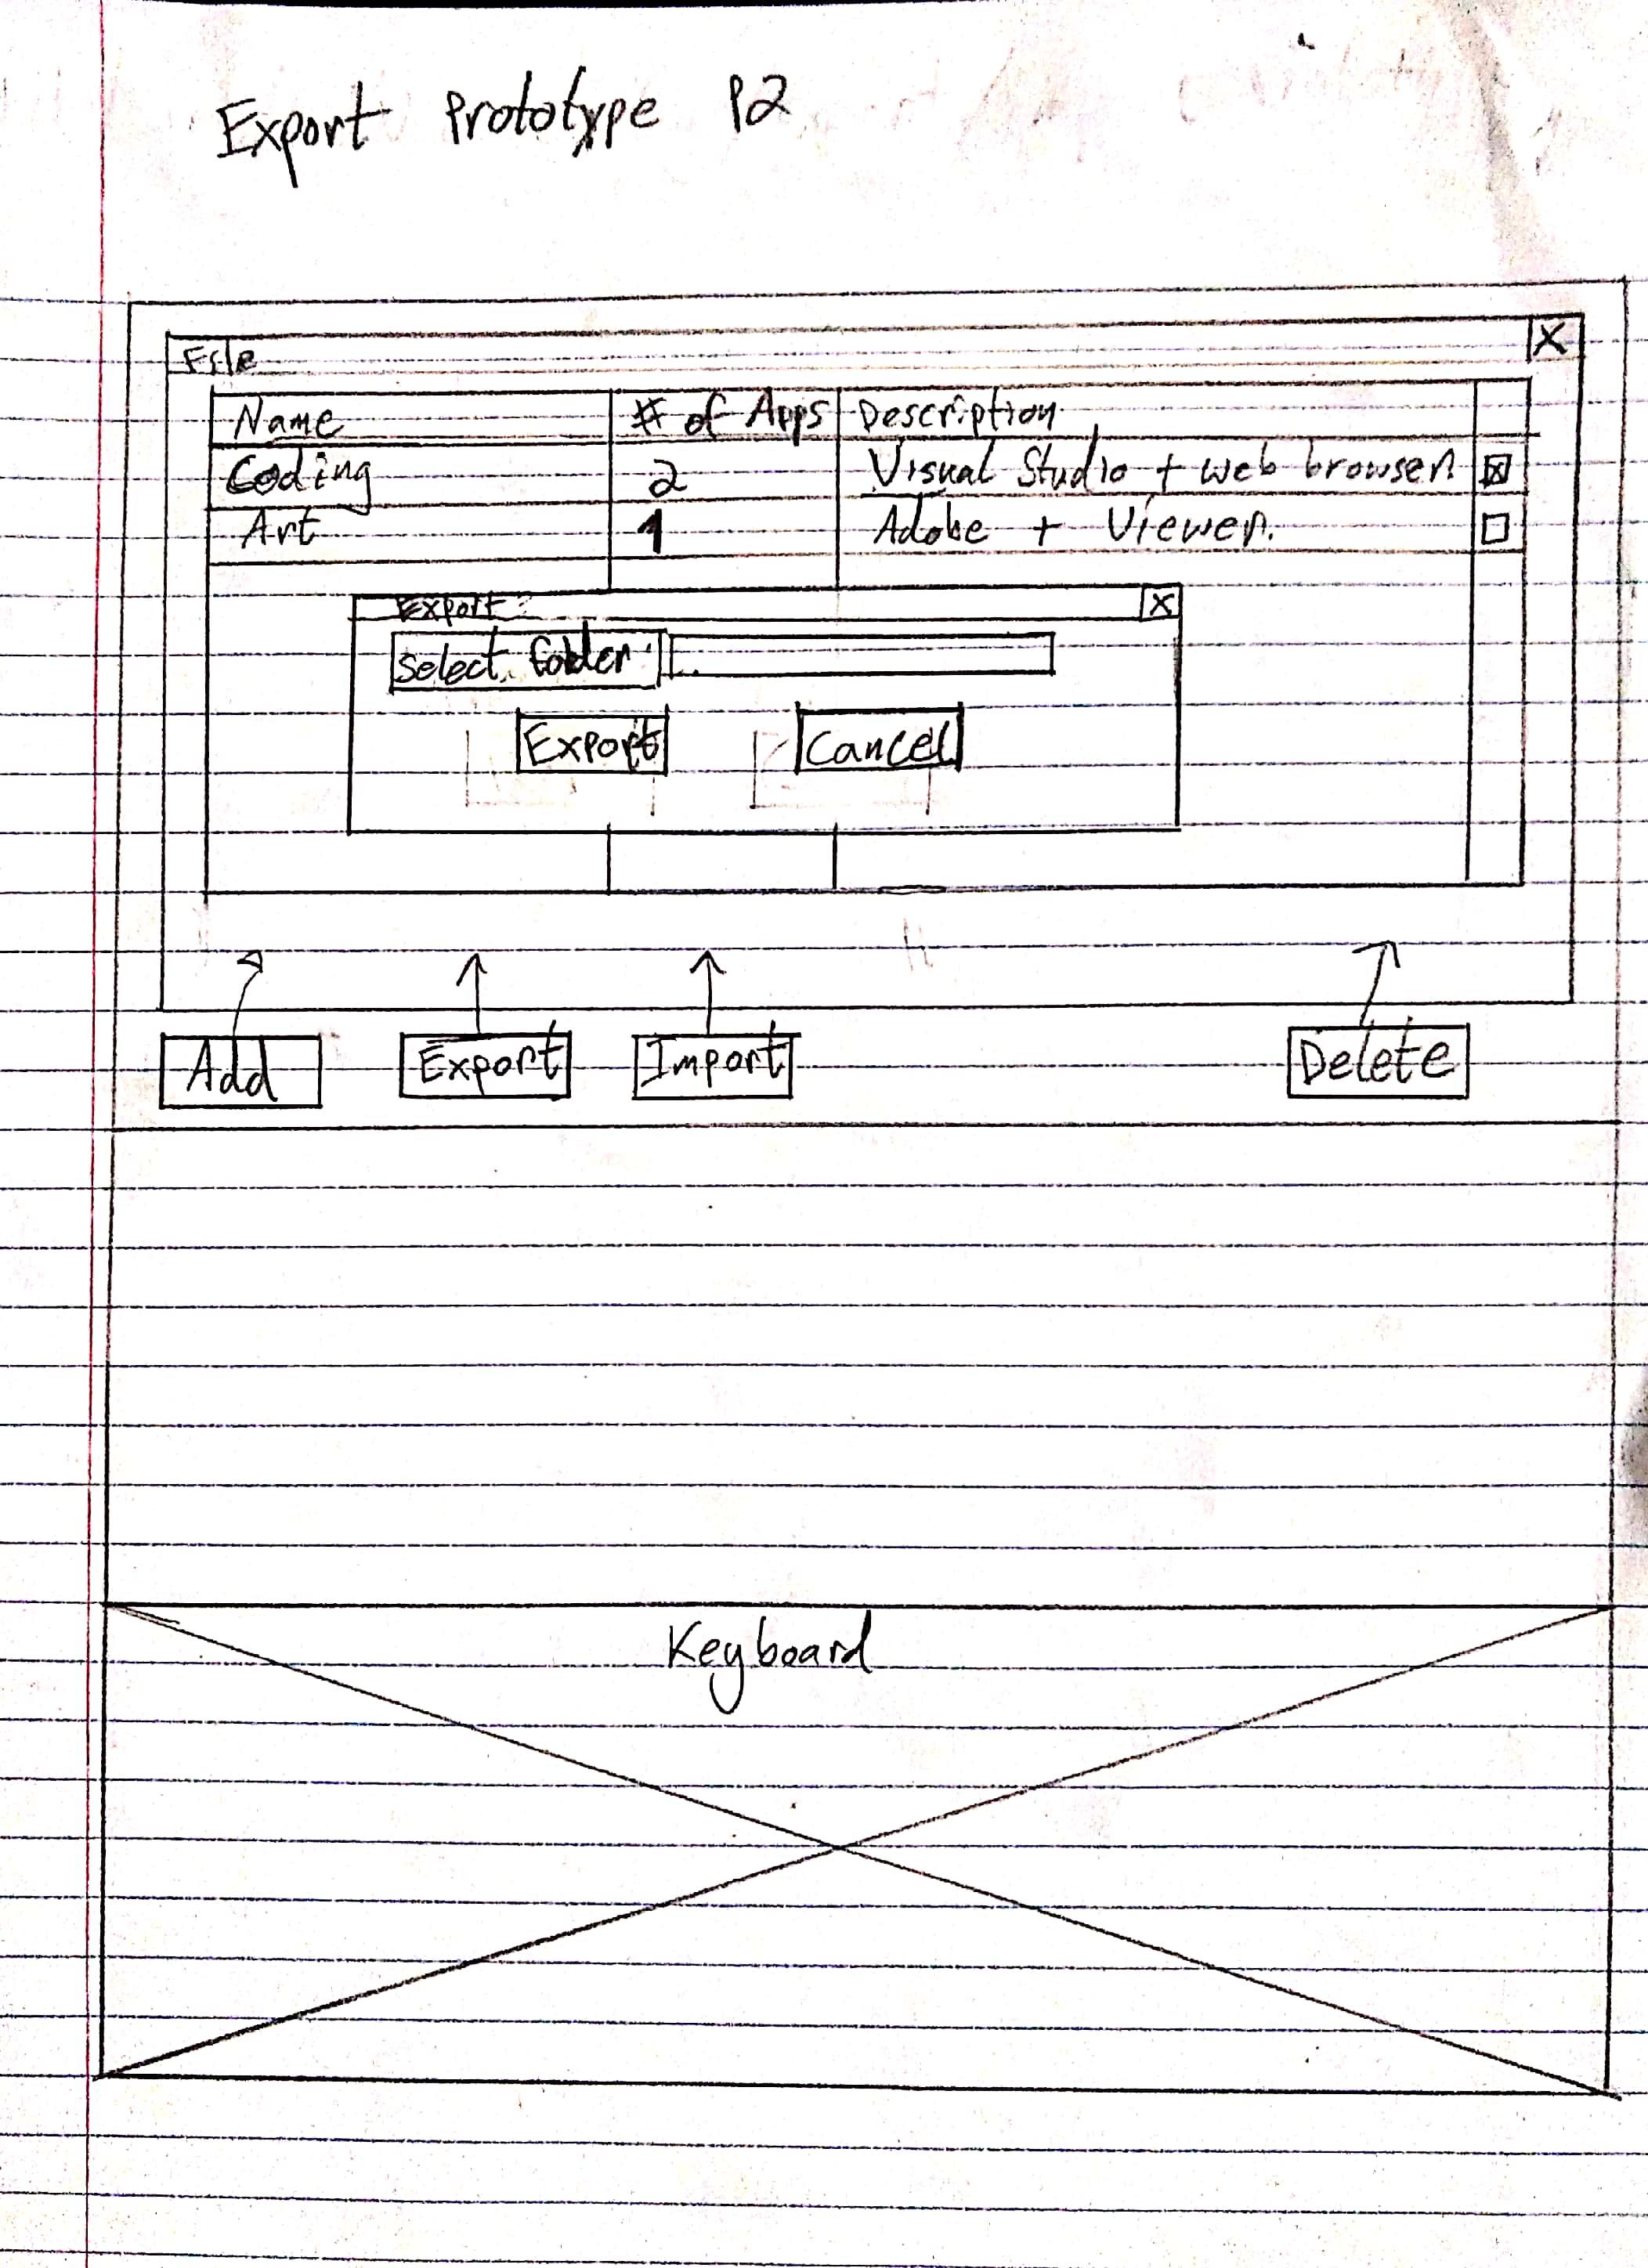 Export Prototype P2
File X
Name # of Apps Description
Coding 2 Visual Studio + web browser
Art 1 Adobe + Viewer
Export X
Select folder
Export Cancel
Add Export Import Delete
Keyboard